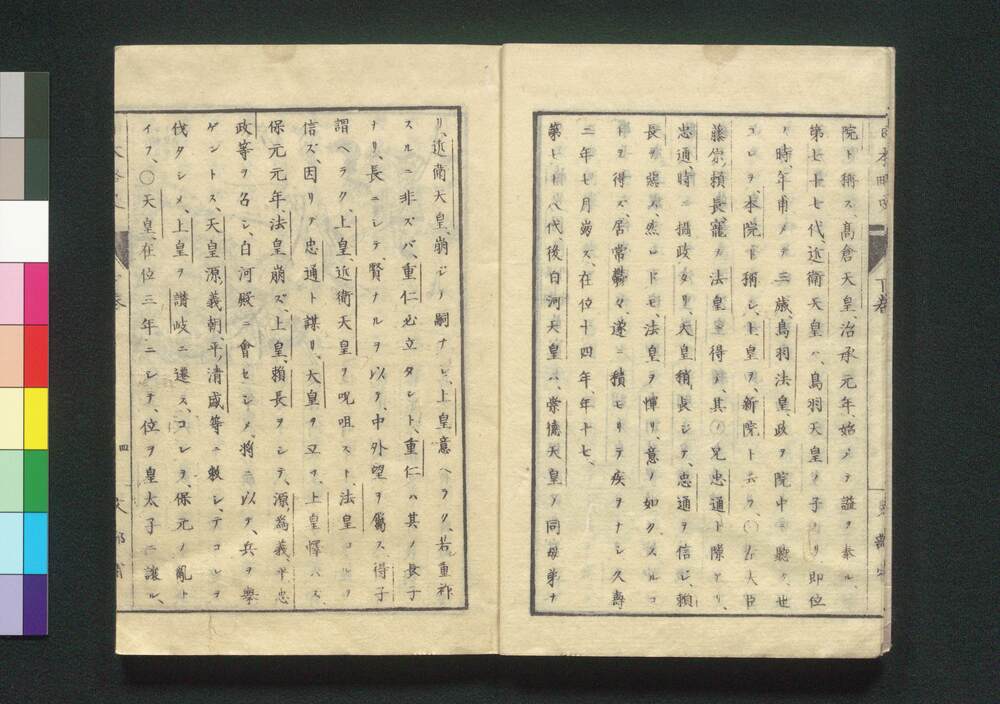 院ト稱ス、高倉天皇、治承元年、始メテ謚ヲ奉ル、
第七十七代近衛天皇ハ、鳥羽天皇ノ子ナリ、即位
ノ時、年甫メテ三歳、鳥羽法皇、政ヲ院中ニ聽ク、世
コレヲ、本院ト稱シ、上皇ヲ、新院ト云フ、〇左大臣
藤原頼長、寵ヲ法皇ニ得テ、其ノ兄忠通ト隙アリ、
忠通、時ニ攝政タリ、天皇稍、長ジテ、忠通ヲ信ジ、頼
長ヲ惡ム、然レドモ、法皇ヲ憚リ、意ノ如クスルコ
トヲ得ズ、居常鬱々、遂ニ積モリテ疾ヲナシ、久壽
二年七月崩ズ、在位十四年、年十七、
第七十八代、後白河天皇ハ、崇德天皇ノ同母弟ナ
リ、近衛天皇、崩ジテ嗣ナシ、上皇意ヘラク、若、重祚
スルニ非ズバ、重仁必立タント、重仁ハ其ノ長子
ナリ、長ニシテ賢ナルヲ以テ、中外望ヲ屬ス、得子
謂ヘラク、上皇、近衛天皇ヲ呪咀スト、法皇コレヲ
信ズ、因リテ忠通ト謀リ、天皇ヲ立ツ、上皇懌バズ、
保元元年、法皇崩ズ、上皇、頼長ヲシテ、源爲義、平忠
政等ヲ召シ、白河殿ニ會セシメ、將ニ以テ、兵ヲ擧
ゲントス、天皇源義朝、平清盛等ニ敕シ、テコレヲ
伐タシメ、上皇ヲ讃岐ニ遷ス、コレヲ、保元ノ亂ト
イフ、〇天皇、在位三年ニシテ、位ヲ皇太子ニ讓ル、
四